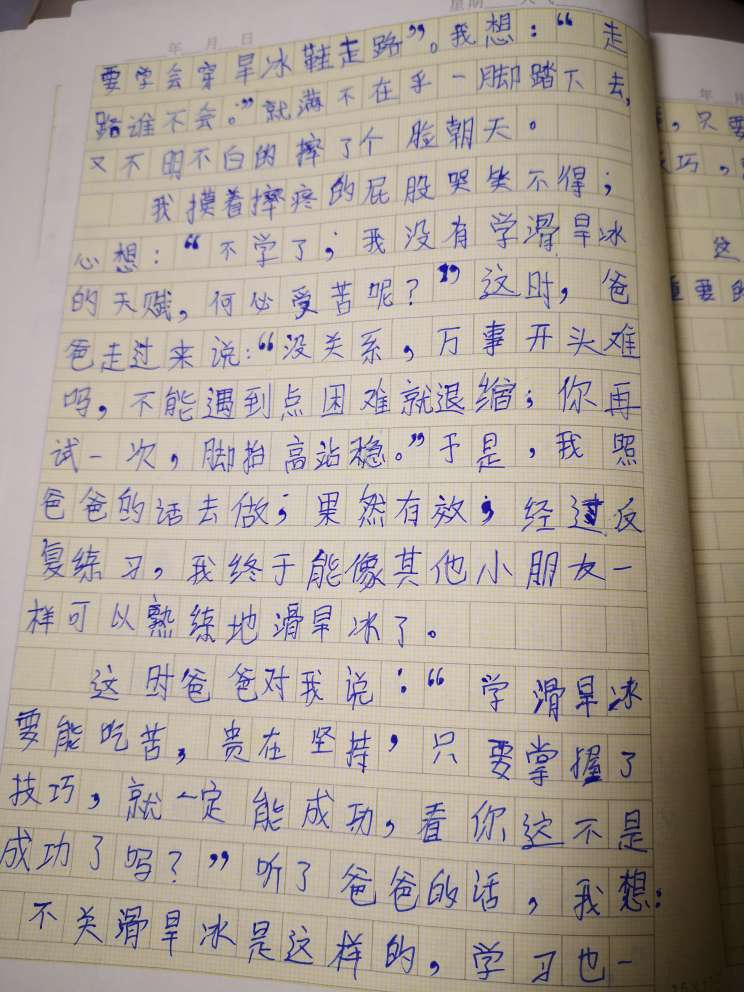 年 月 日
星期
要学会穿旱冰鞋走路”。我想：“走
路谁不会。”就满不在乎一脚踏下去，
又不明不白的摔了个脸朝天。
我摸着摔疼的屁股哭笑不得；
心想：“不学了；我没有学滑旱冰
的天赋，何必受苦呢？”这时，爸
爸走过来说：“没关系，万事开头难
吗，不能遇到点困难就退缩；你再
试一次，脚抬高站稳。”于是，我照
爸爸的话去做；果然有效；经过反
复练习，我终于能像其他小朋友一
样可以熟练地滑旱冰了。
这时爸爸对我说：“学滑旱冰
要能吃苦，贵在坚持，只要掌握了
技巧，就一定能成功，看你这不是
成功了吗？”听了爸爸的话，我想：
不关滑旱冰是这样的，学习也一
年 月
，只要
巧，
这
重要的